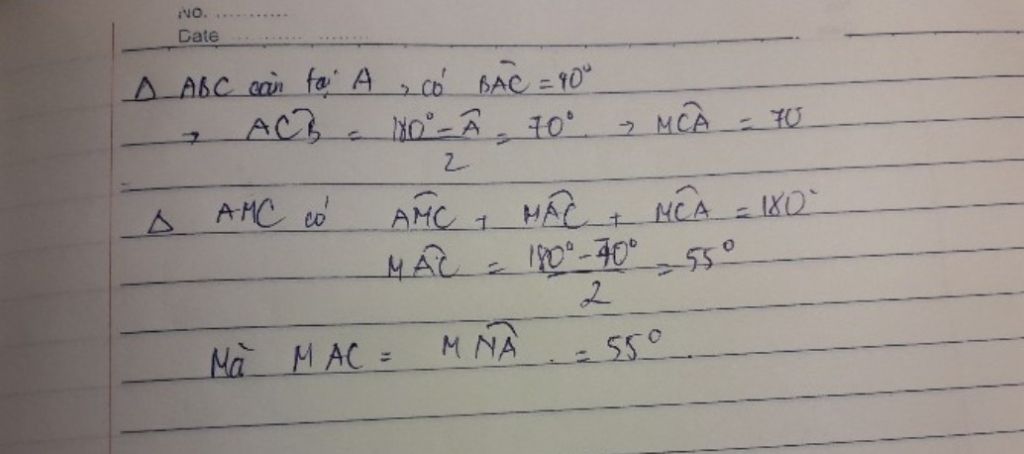 NO. ............
Date ............ ............
Δ ABC cân tại A, có BAC = 40°
→ ACB = 180° - A / 2 = 70° → MCA = 70
Δ AMC có AMC + MAC + MCA = 180°
MAC = 180° - 70° / 2 = 55°
Mà MAC = MNA = 55°